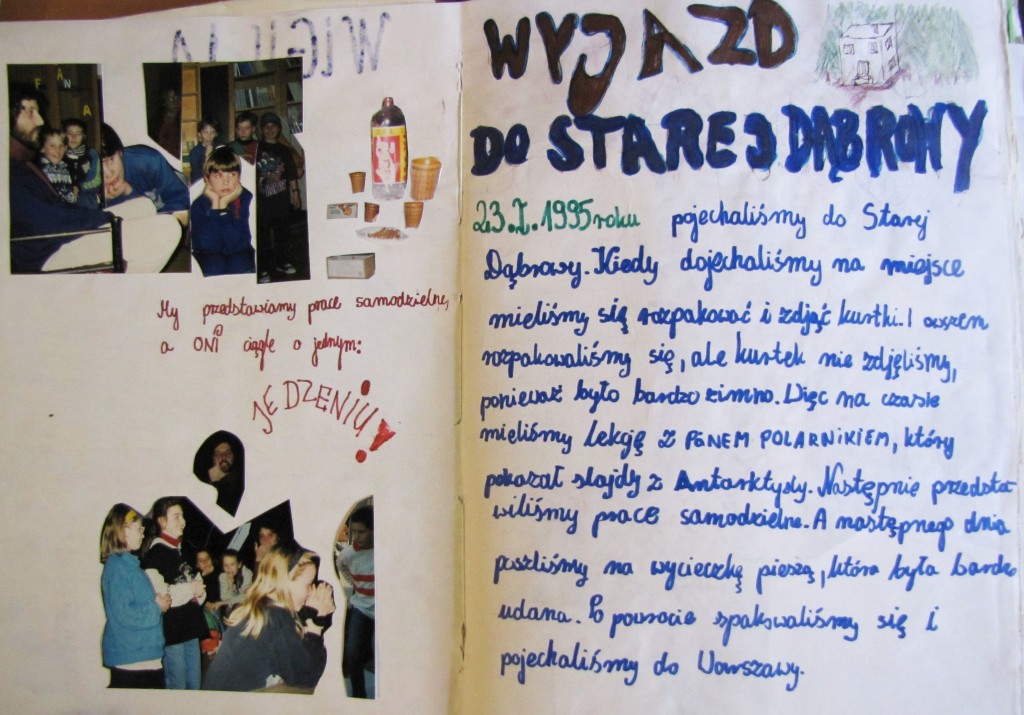 WIGILIA
FANA
My przedstawiamy prace samodzielne,
a ONI ciągle o jednym:
JEDZENIU!
WYJAZD
DO STAREJ DĄBROWY
23.I.1995 roku pojechaliśmy do Starej
Dąbrowy. Kiedy dojechaliśmy na miejsce
mieliśmy się rozpakować i zdjąć kurtki. I owszem
rozpakowaliśmy się, ale kurtek nie zdjęliśmy,
ponieważ było bardzo zimno. Więc na czasie
mieliśmy lekcję z PANEM POLARNIKIEM, który
pokazał slajdy z Antarktydy. Następnie przedsta-
wiliśmy prace samodzielne. A następnego dnia
poszliśmy na wycieczkę pieszą, która była bardzo
udana. Po powrocie spakowaliśmy się i
pojechaliśmy do Warszawy.